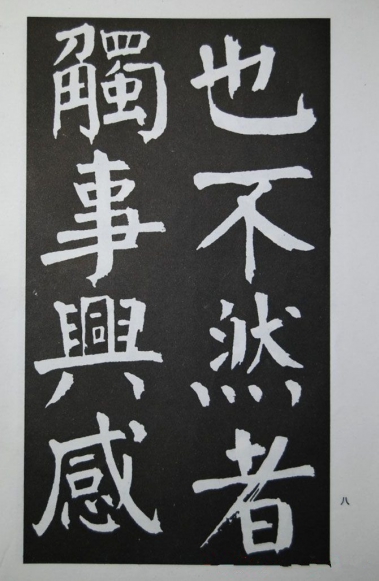 也不然者
觸事興感
八